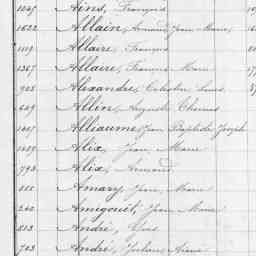 Ains, François
1622 Allain, Armand Jean Marie
1119 Allaire, François
1267 Allaire, Francois Marie
905 Alexandre, Celestin Louis
649 Allin, Auguste Thomas
1407 Alliaume, Jean Baptiste Joseph
1489 Alix, Jean Marie
793 Alix, Armand
Amary, Jean Marie
240 Amigouët, Jean Marie
813 André, Yves
703 André, Julien